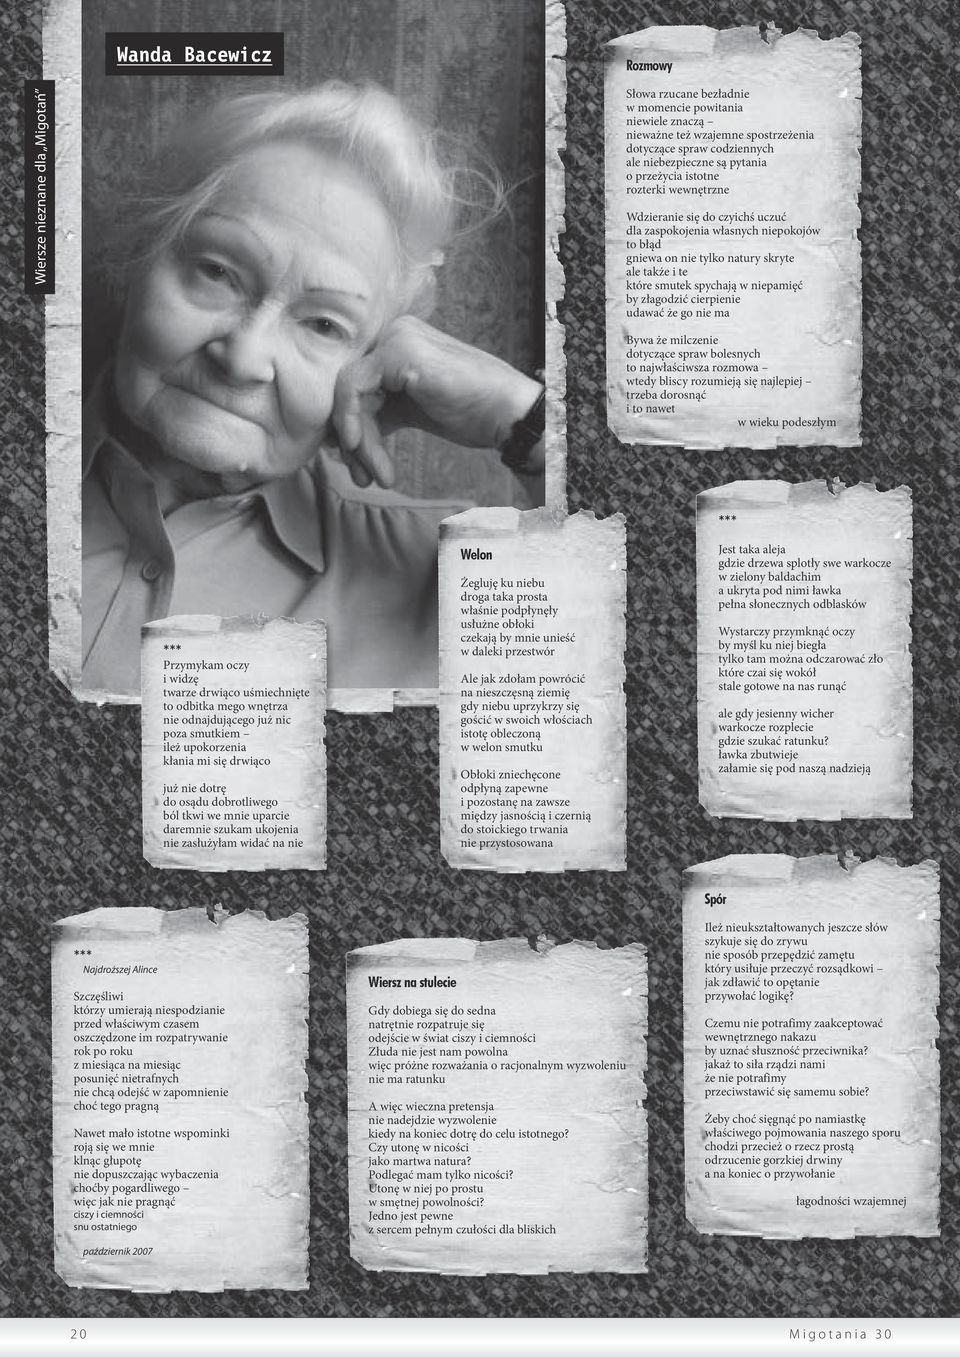 Wanda Bacewicz
Wiersze nieznane dla „Migotań”
Rozmowy
Słowa rzucane bezładnie
w momencie powitania
niewiele znaczą –
nieważne też wzajemne spostrzeżenia
dotyczące spraw codziennych
ale niebezpieczne są pytania
o przeżycia istotne
rozterki wewnętrzne
Wdzieranie się do czyichś uczuć
dla zaspokojenia własnych niepokojów
to błąd
gniewa on nie tylko natury skryte
ale także i te
które smutek spychają w niepamięć
by złagodzić cierpienie
udawać że go nie ma
Bywa że milczenie
dotyczące spraw bolesnych
to najwłaściwsza rozmowa –
wtedy bliscy rozumieją się najlepiej –
trzeba dorosnąć
i to nawet
w wieku podeszłym
***
Przymykam oczy
i widzę
twarze drwiąco uśmiechnięte
to odbitka mego wnętrza
nie odnajdującego już nic
poza smutkiem –
ileż upokorzenia
kłania mi się drwiąco
już nie dotrę
do osądu dobrotliwego
ból tkwi we mnie uparcie
daremnie szukam ukojenia
nie zasłużyłam widać na nie
Welon
Żegluję ku niebu
droga taka prosta
właśnie podpłynęły
usłużne obłoki
czekają by mnie unieść
w daleki przestwór
Ale jak zdołam powrócić
na nieszczęsną ziemię
gdy niebu uprzykrzy się
gościć w swoich włościach
istotę obleczoną
w welon smutku
Obłoki zniechęcone
odpłyną zapewne
i pozostanę na zawsze
między jasnością i czernią
do stoickiego trwania
nie przystosowana
***
Jest taka aleja
gdzie drzewa splotły swe warkocze
w zielony baldachim
a ukryta pod nimi ławka
pełna słonecznych odblasków
Wystarczy przymknąć oczy
by myśl ku niej biegła
tylko tam można odczarować zło
które czai się wokół
stale gotowe na nas runąć
ale gdy jesienny wicher
warkocze rozplecie
gdzie szukać ratunku?
ławka zbutwieje
załamie się pod naszą nadzieją
***
Najdroższej Alince
Szczęśliwi
którzy umierają niespodzianie
przed właściwym czasem
oszczędzone im rozpatrywanie
rok po roku
z miesiąca na miesiąc
posunięć nietrafnych
nie chcą odejść w zapomnienie
choć tego pragną
Nawet mało istotne wspominki
roją się we mnie
klnąc głupotę
nie dopuszczając wybaczenia
choćby pogardliwego –
więc jak nie pragnąć
ciszy i ciemności
snu ostatniego
październik 2007
Wiersz na stulecie
Gdy dobiega się do sedna
natrętnie rozpatruje się
odejście w świat ciszy i ciemności
Złuda nie jest nam powolna
więc próżne rozważania o racjonalnym wyzwoleniu
nie ma ratunku
A więc wieczna pretensja
nie nadejdzie wyzwolenie
kiedy na koniec dotrę do celu istotnego?
Czy utonę w nicości
jako martwa natura?
Podlegać mam tylko nicości?
Utonę w niej po prostu
w smętnej powolności?
Jedno jest pewne
z sercem pełnym czułości dla bliskich
Spór
Ileż nieukształtowanych jeszcze słów
szykuje się do zrywu
nie sposób przepędzić zamętu
który usiłuje przeczyć rozsądkowi –
jak zdławić to opętanie
przywołać logikę?
Czemu nie potrafimy zaakceptować
wewnętrznego nakazu
by uznać słuszność przeciwnika?
jakaż to siła rządzi nami
że nie potrafimy
przeciwstawić się samemu sobie?
Żeby choć sięgnąć po namiastkę
właściwego pojmowania naszego sporu
chodzi przecież o rzecz prostą
odrzucenie gorzkiej drwiny
a na koniec o przywołanie
łagodności wzajemnej
20
Migotania 30